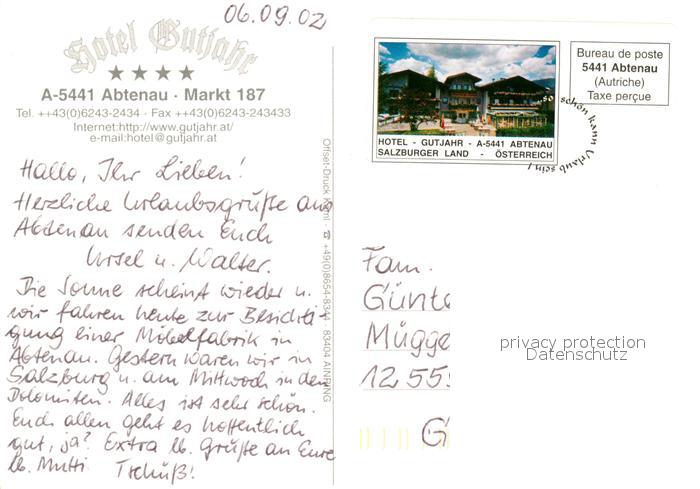 06.09.02
Hotel Gutjahr
★★★★
A-5441 Abtenau · Markt 187
Tel. ++43(0)6243-2434 · Fax ++43(0)6243-243433
Internet:http://www.gutjahr.at/
e-mail:hotel@gutjahr.at
Hallo, Ihr Lieben!
Herzliche Urlaubsgrüße aus
Abtenau senden Euch
Ursel u. Walter.
Die Sonne scheint wieder u.
wir fahren heute zur Besichti-
gung einer Möbelfabrik in
Abtenau. Gestern waren wir in
Salzburg u. am Mittwoch in den
Dolomiten. Alles ist sehr schön.
Euch allen geht es hoffentlich
gut, ja? Extra lb. Grüße an Eure
lb. Mutti Tschüß!
Offset-Druck
++49(0)8654-8344 · 83404 AINRING
HOTEL - GUTJAHR - A-5441 ABTENAU
SALZBURGER LAND - ÖSTERREICH
so schön kann Urlaub sein!
Bureau de poste
5441 Abtenau
(Autriche)
Taxe perçue
Fam.
Günte
Mügge
12 55
G
privacy protection
Datenschutz